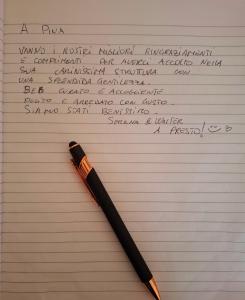 A PINA
VANNO I NOSTRI MIGLIORI RINGRAZIAMENTI
E COMPLIMENTI PER AVERCI ACCOLTO NELLA
SUA CARINISSIMA STRUTTURA CON
UNA SPLENDIDA GENTILEZZA.
B&B CURATO E ACCOGLIENTE
PULITO E ARREDATO CON GUSTO.
SIAMO STATI BENISSIMO.
SERENA & WALTER
A PRESTO!